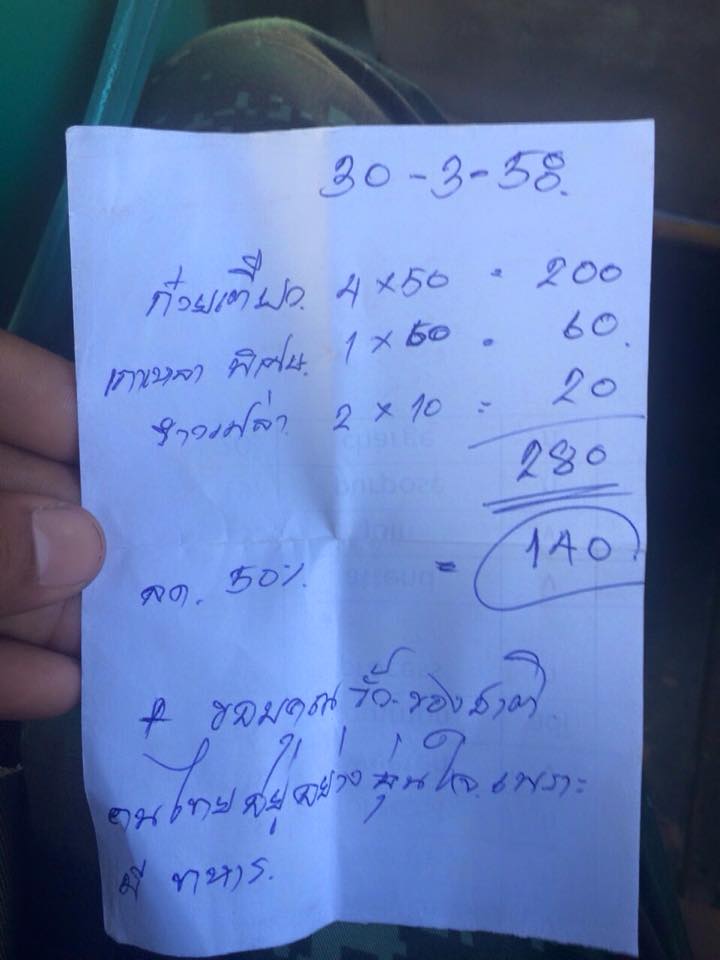 30-3-58.
ก๋วยเตี๋ยว. 4 x 50 = 200
เกาเหลา พิเศษ. 1 x 60 = 60.
ข้าวเปล่า. 2 x 10 = 20
280
ลด. 50% = 140.
* ขอบคุณ รั้วของชาติ
คนไทยอยู่อย่างอุ่นใจ เพราะ
มี ทหาร.